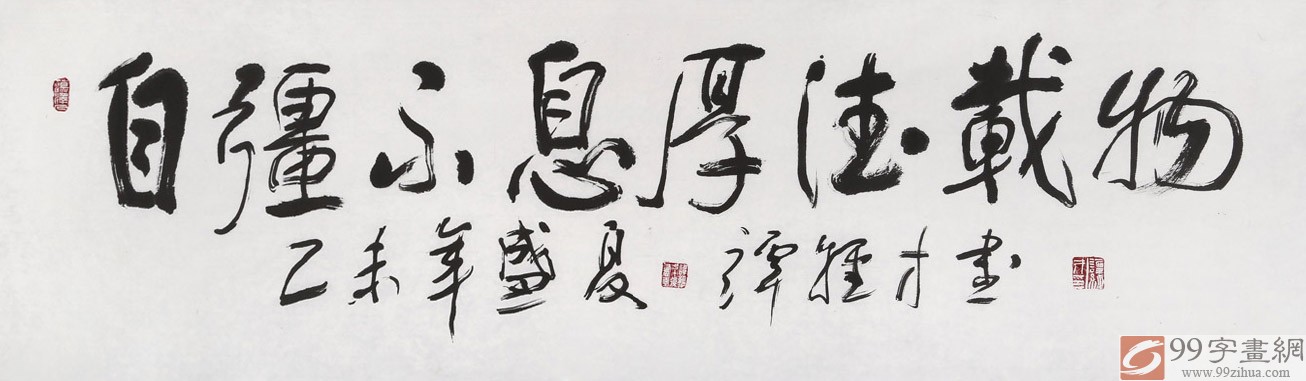 自彊不息厚德載物
乙未年盛夏 譚 才書
99字畫網
www.99zihua.com